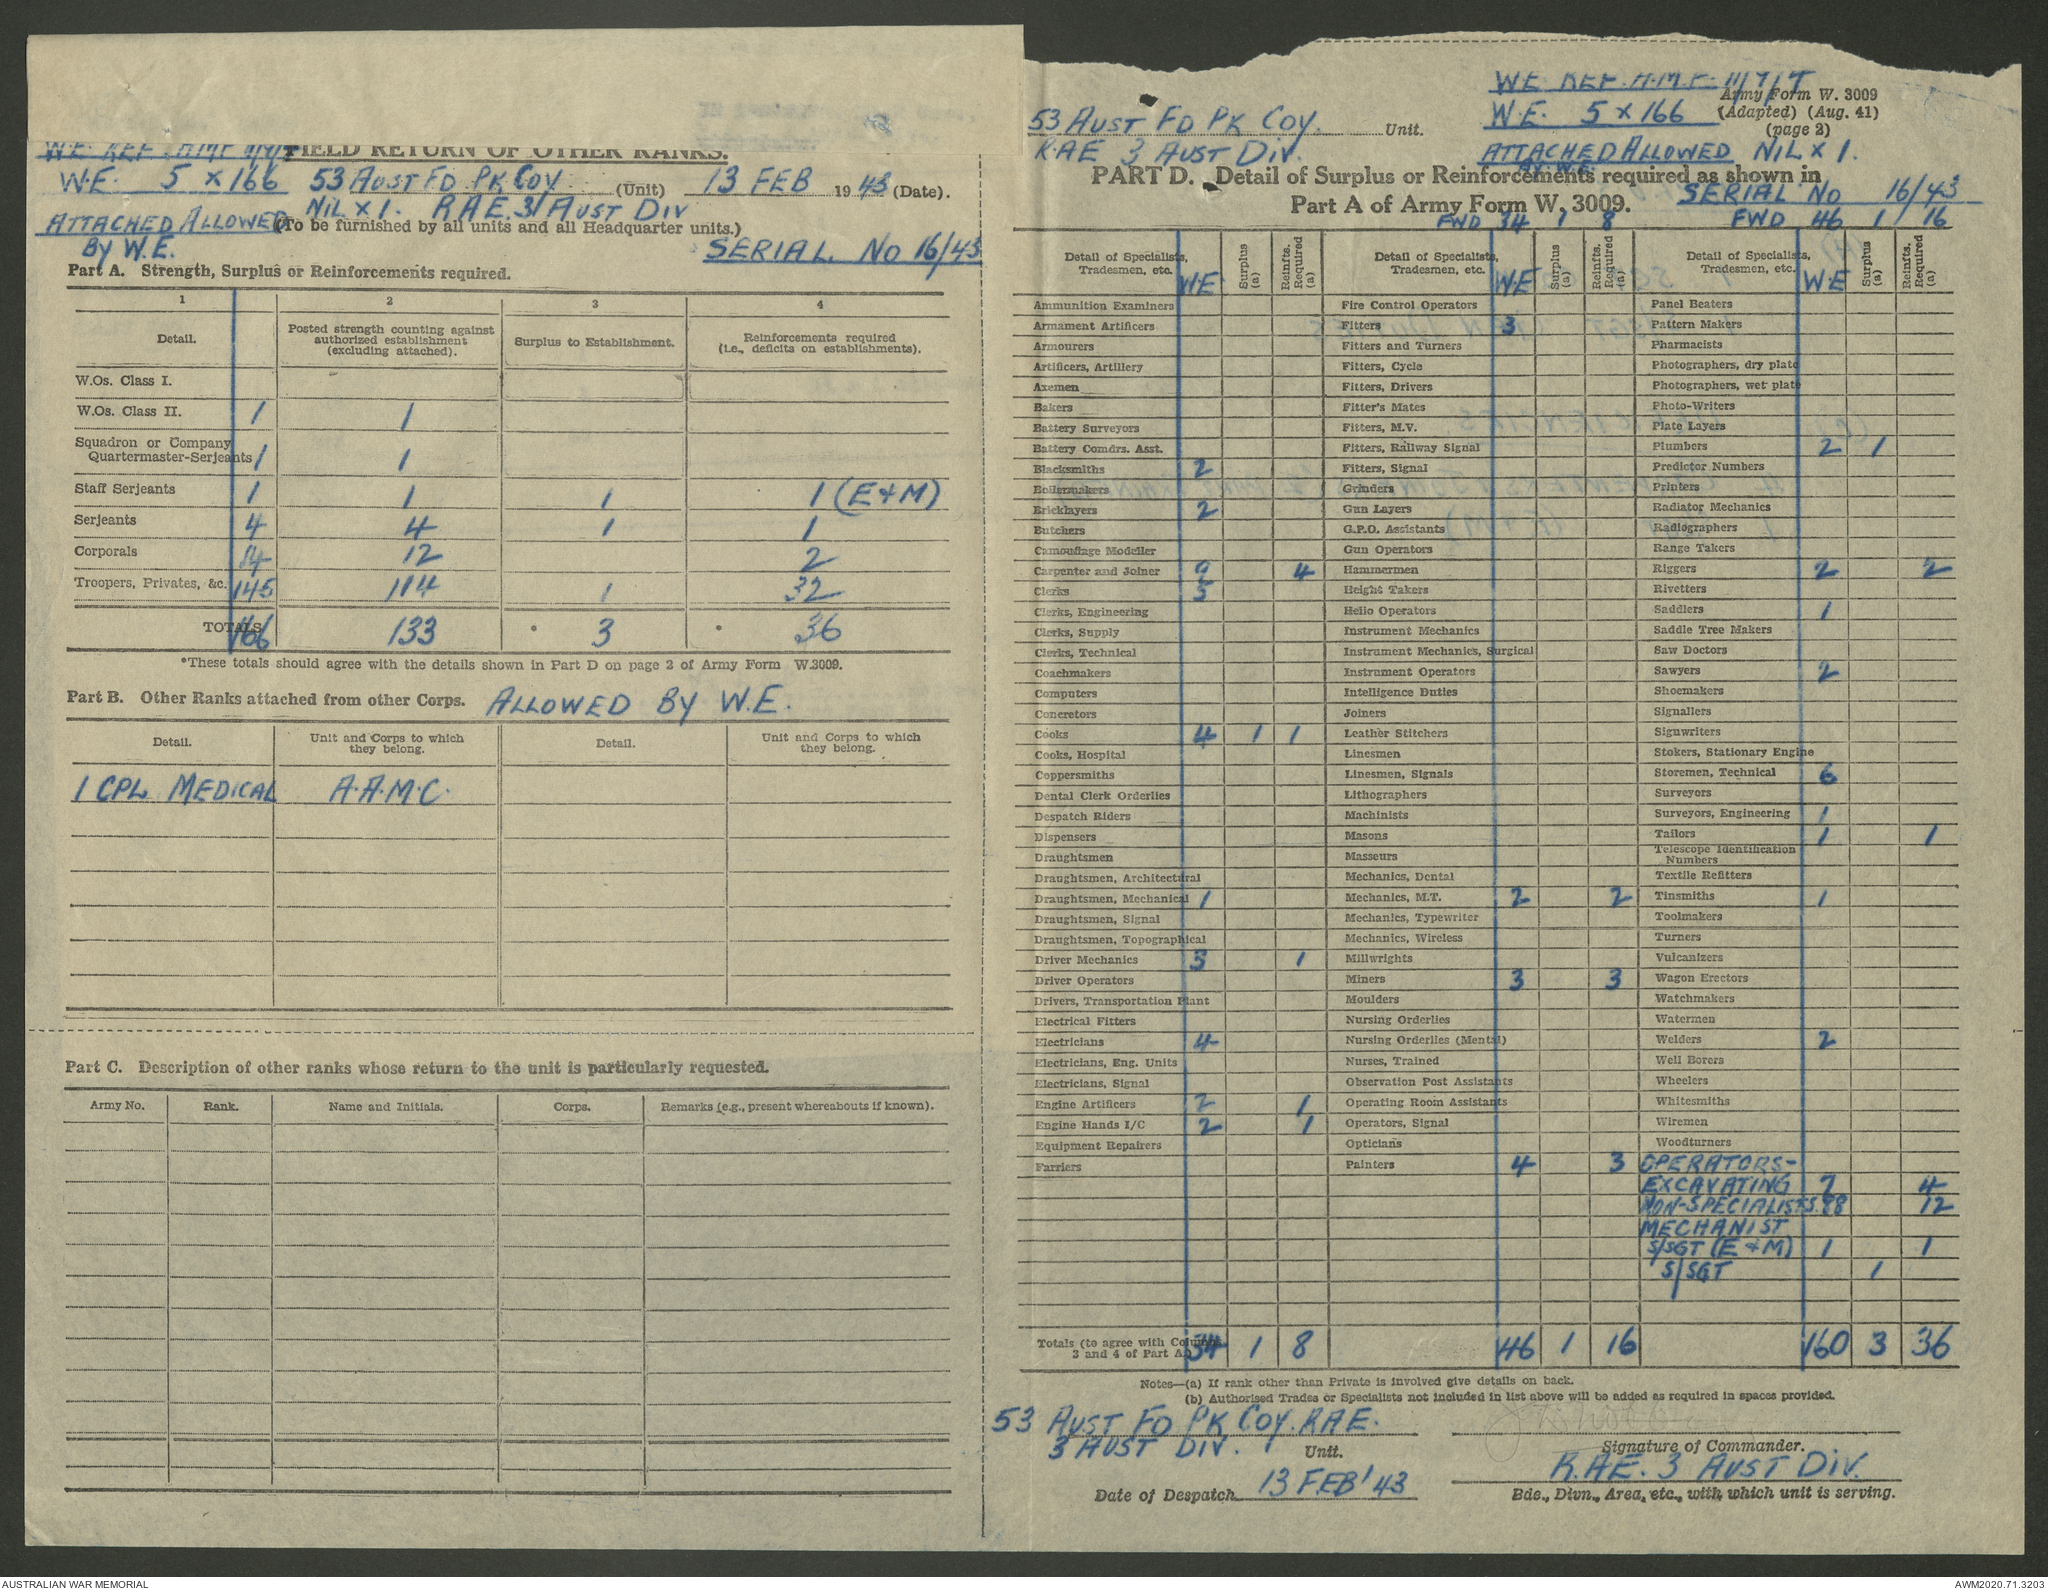 W.E. REF. A.M.F. 11/7/7
FIELD RETURN OF OTHER RANKS.
W.E. 5 x 166 53 AUST FD PK COY (Unit) 13 FEB 1943 (Date).
ATTACHED ALLOWED NIL X 1. RAE. 3 AUST DIV
(To be furnished by all units and all Headquarter units.)
BY W.E. SERIAL No 16/43
Part A. Strength, Surplus or Reinforcements required.
1 2 3 4
Detail. Posted strength counting against authorized establishment (excluding attached). Surplus to Establishment. Reinforcements required (i.e., deficits on establishments).
W.Os. Class I.
W.Os. Class II. 1 1
Squadron or Company
Quartermaster-Serjeants 1 1
Staff Serjeants 1 1 1 1 (E+M)
Serjeants 4 4 1 1
Corporals 14 12 2
Troopers, Privates, &c. 145 114 1 32
TOTALS 166 133 * 3 * 36
*These totals should agree with the details shown in Part D on page 2 of Army Form W.3009.
Part B. Other Ranks attached from other Corps. ALLOWED BY W.E.
Detail. Unit and Corps to which they belong. Detail. Unit and Corps to which they belong.
1 CPL MEDICAL A.A.M.C.
Part C. Description of other ranks whose return to the unit is particularly requested.
Army No. Rank. Name and Initials. Corps. Remarks (e.g., present whereabouts if known).
W.E. REF. A.M.F. 11/7/7
Army Form W. 3009
53 AUST FD PK COY. Unit. W.E. 5 x 166 (Adapted) (Aug. 41)
(page 2)
RAE 3 AUST DIV. ATTACHED ALLOWED NIL X 1.
BY W.E.
PART D. Detail of Surplus or Reinforcements required as shown in
Part A of Army Form W. 3009. SERIAL No 16/43
FWD 34 1 8 FWD 46 1 16
Detail of Specialists, Tradesmen, etc. W.E Surplus (a) Reinfts. Required (a) Detail of Specialists, Tradesmen, etc. W.E Surplus (a) Reinfts. Required (a) Detail of Specialists, Tradesmen, etc. W.E Surplus (a) Reinfts. Required (a)
Ammunition Examiners Fire Control Operators Panel Beaters
Armament Artificers Fitters 3 Pattern Makers
Armourers Fitters and Turners Pharmacists
Artificers, Artillery Fitters, Cycle Photographers, dry plate
Axemen Fitters, Drivers Photographers, wet plate
Bakers Fitter's Mates Photo-Writers
Battery Surveyors Fitters, M.V. Plate Layers
Battery Comdrs. Asst. Fitters, Railway Signal Plumbers 2 1
Blacksmiths 2 Fitters, Signal Predictor Numbers
Boilermakers Grinders Printers
Bricklayers 2 Gun Layers Radiator Mechanics
Butchers G.P.O. Assistants Radiographers
Camouflage Modeller Gun Operators Range Takers
Carpenter and Joiner 9 4 Hammermen Riggers 2 2
Clerks 3 Height Takers Rivetters
Clerks, Engineering Helio Operators Saddlers 1
Clerks, Supply Instrument Mechanics Saddle Tree Makers
Clerks, Technical Instrument Mechanics, Surgical Saw Doctors
Coachmakers Instrument Operators Sawyers 2
Computers Intelligence Duties Shoemakers
Concretors Joiners Signallers
Cooks 4 1 1 Leather Stitchers Signwriters
Cooks, Hospital Linesmen Stokers, Stationary Engine
Coppersmiths Linesmen, Signals Storemen, Technical 6
Dental Clerk Orderlies Lithographers Surveyors
Despatch Riders Machinists Surveyors, Engineering 1
Dispensers Masons Tailors 1 1
Draughtsmen Masseurs Telescope Identification Numbers
Draughtsmen, Architectural Mechanics, Dental Textile Refitters
Draughtsmen, Mechanical 1 Mechanics, M.T. 2 2 Tinsmiths 1
Draughtsmen, Signal Mechanics, Typewriter Toolmakers
Draughtsmen, Topographical Mechanics, Wireless Turners
Driver Mechanics 3 1 Millwrights Vulcanizers
Driver Operators Miners 3 3 Wagon Erectors
Drivers, Transportation Plant Moulders Watchmakers
Electrical Fitters Nursing Orderlies Watermen
Electricians 4 Nursing Orderlies (Mental) Welders 2
Electricians, Eng. Units Nurses, Trained Well Borers
Electricians, Signal Observation Post Assistants Wheelers
Engine Artificers 2 1 Operating Room Assistants Whitesmiths
Engine Hands I/C 2 1 Operators, Signal Wiremen
Equipment Repairers Opticians Woodturners
Farriers Painters 4 3 OPERATORS-
EXCAVATING 7 4
NON-SPECIALISTS. 88 12
MECHANIST
S/SGT (E+M) 1 1
S/SGT 1
Totals (to agree with Columns 3 and 4 of Part A.) 34 1 8 46 1 16 160 3 36
Notes—(a) If rank other than Private is involved give details on back.
(b) Authorised Trades or Specialists not included in list above will be added as required in spaces provided.
53 AUST FD PK COY. RAE.
3 AUST DIV. Unit. Signature of Commander.
R.A.E. 3 AUST DIV.
Date of Despatch 13 FEB' 43 Bde., Divn., Area, etc., with which unit is serving.
AUSTRALIAN WAR MEMORIAL AWM2020.71.3203